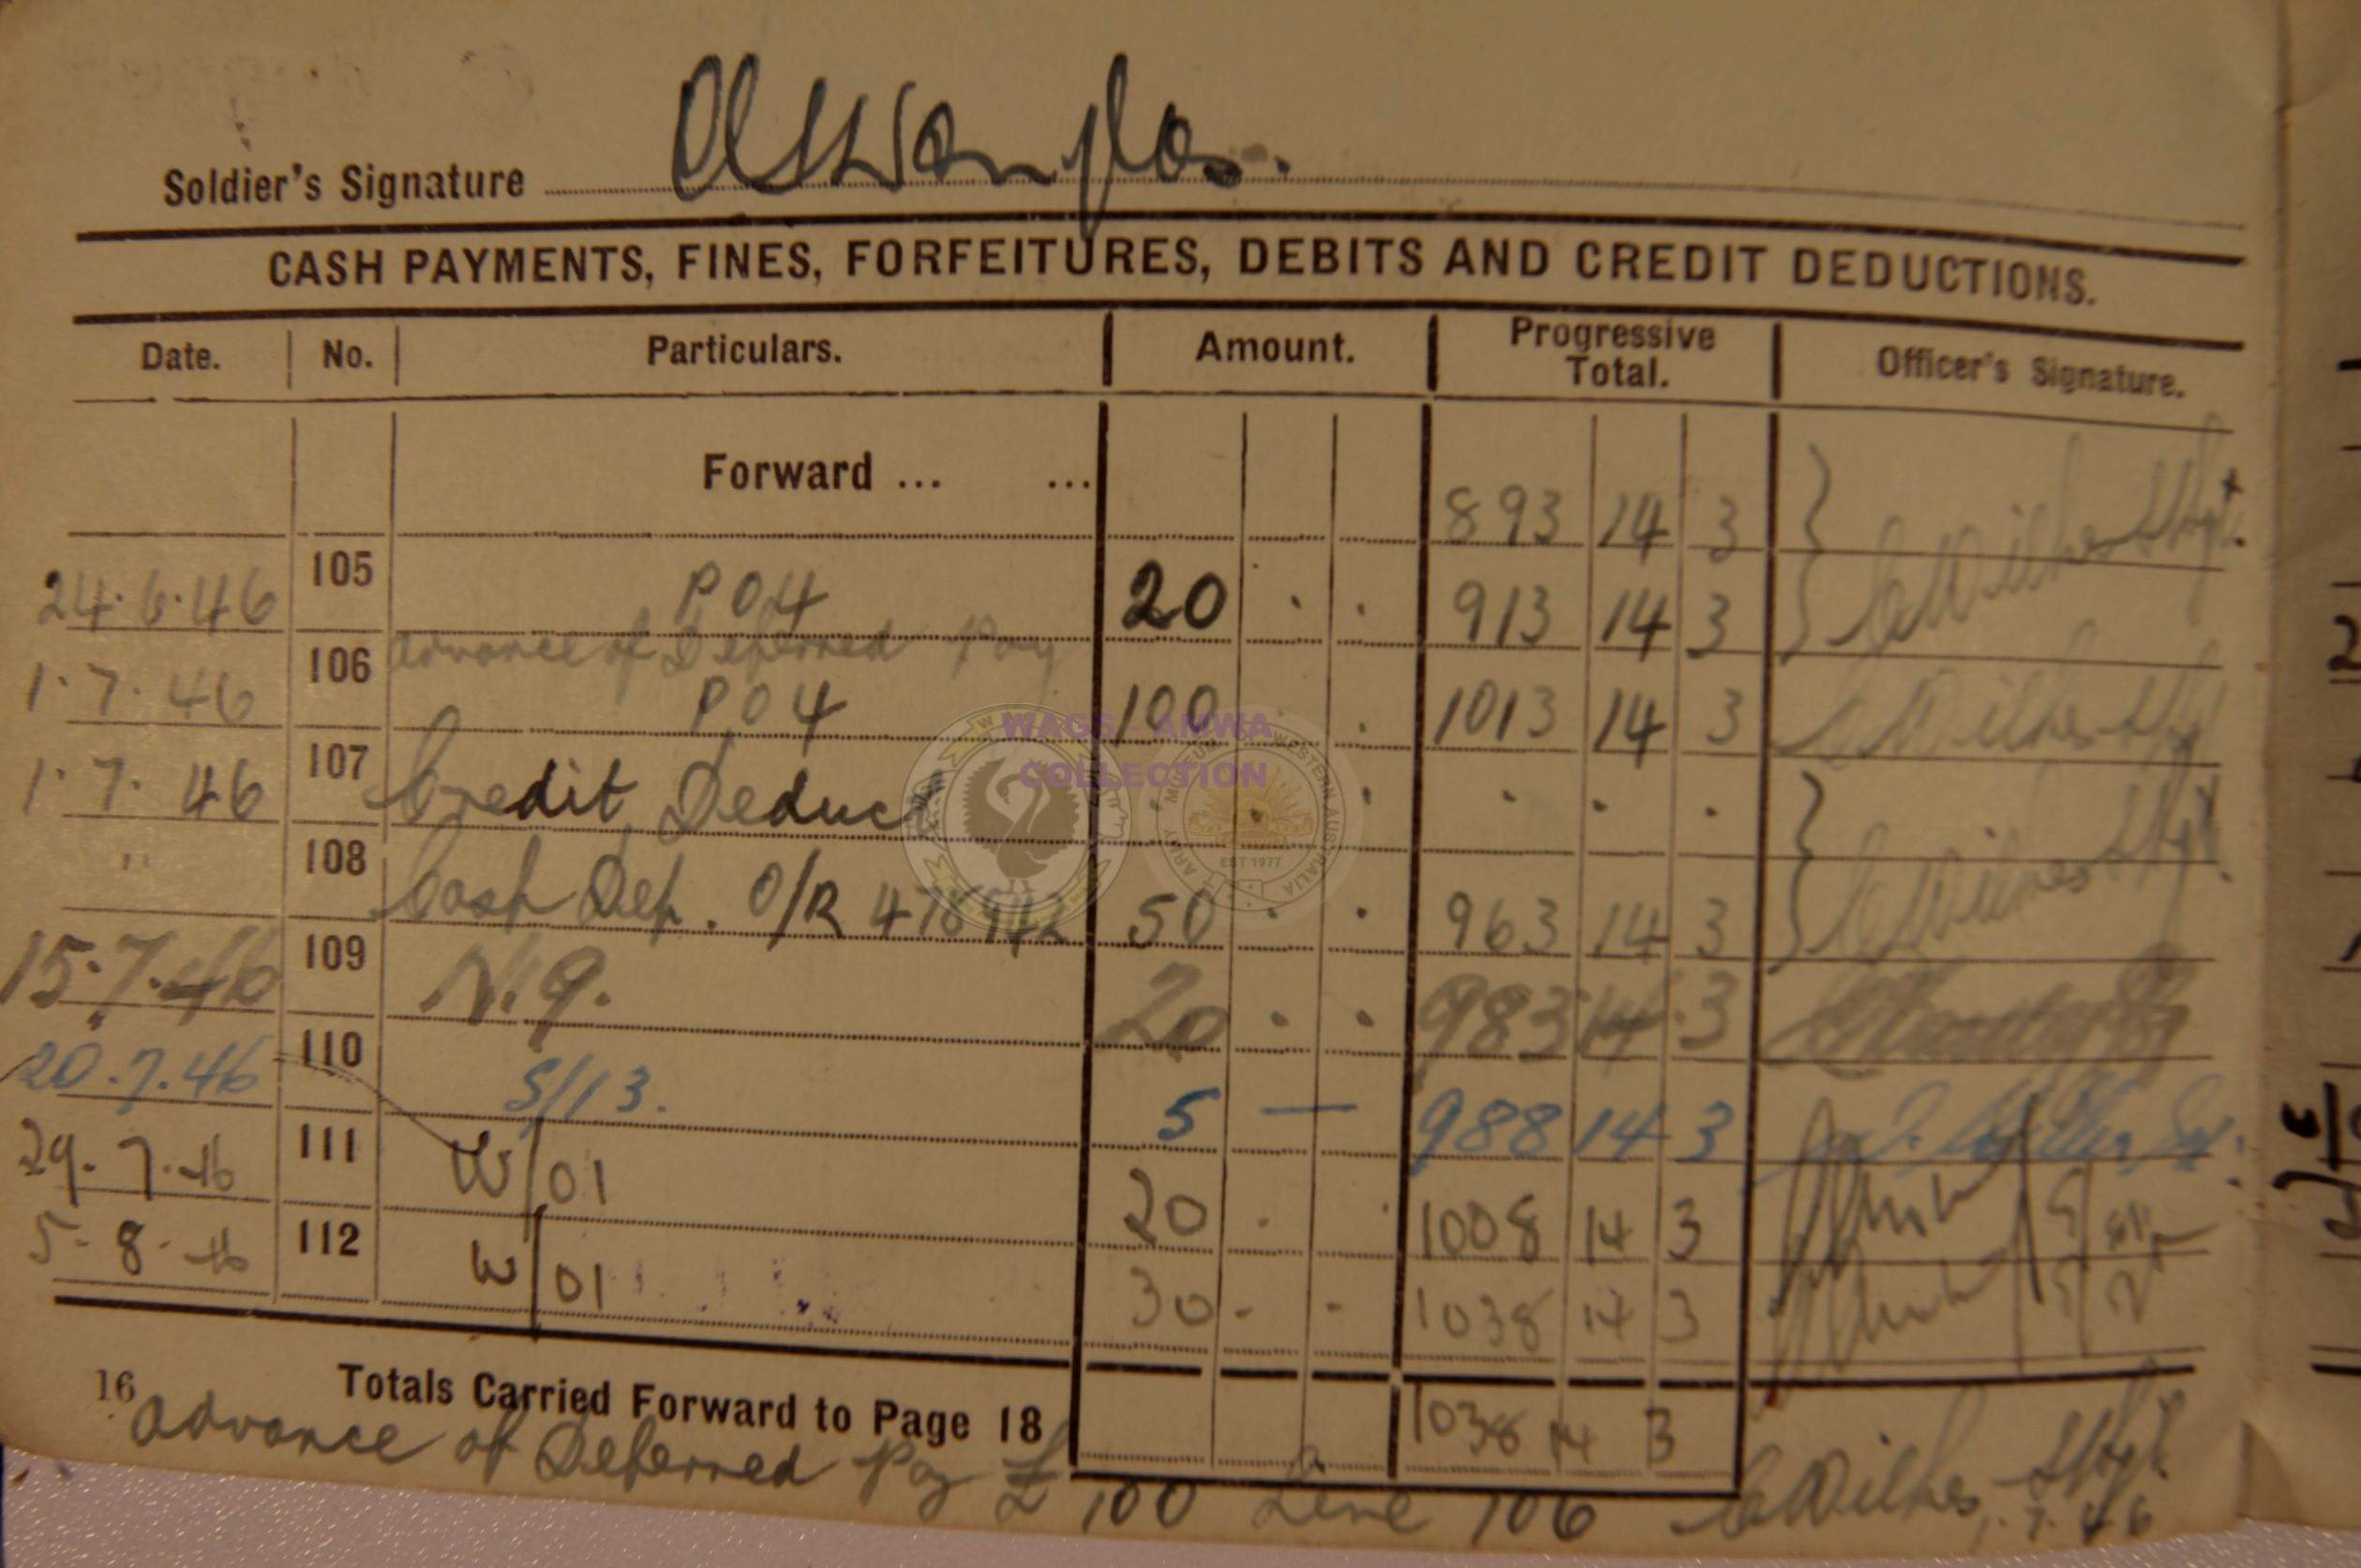 Soldier's Signature
CASH PAYMENTS, FINES, FORFEITURES, DEBITS AND CREDIT DEDUCTIONS.
Date. No. Particulars. Amount. Progressive Total. Officer's Signature.
Forward ... ... 893 14 3
24.6.46 105 P04 20 . . 913 14 3
Advance of Deferred Pay
1.7.46 106 P04 100 . . 1013 14 3
1.7.46 107 Credit Deduct . . . . .
" 108 Cash Dep. O/R 50 . . 963 14 3
15.7.46 109 N.9. 20 . . 983 14 3
20.7.46 110 S/13. 5 — 988 14 3
29.7.46 111 W/01 20 . . 1008 14 3
5.8.46 112 W/01 30 - - 1038 14 3
16 Totals Carried Forward to Page 18 1038 14 3
Advance of Deferred Pay £100 Line 106 C Wilkes, S/Sgt 1.7.46
WAGS - AMWA
COLLECTION
EST 1977